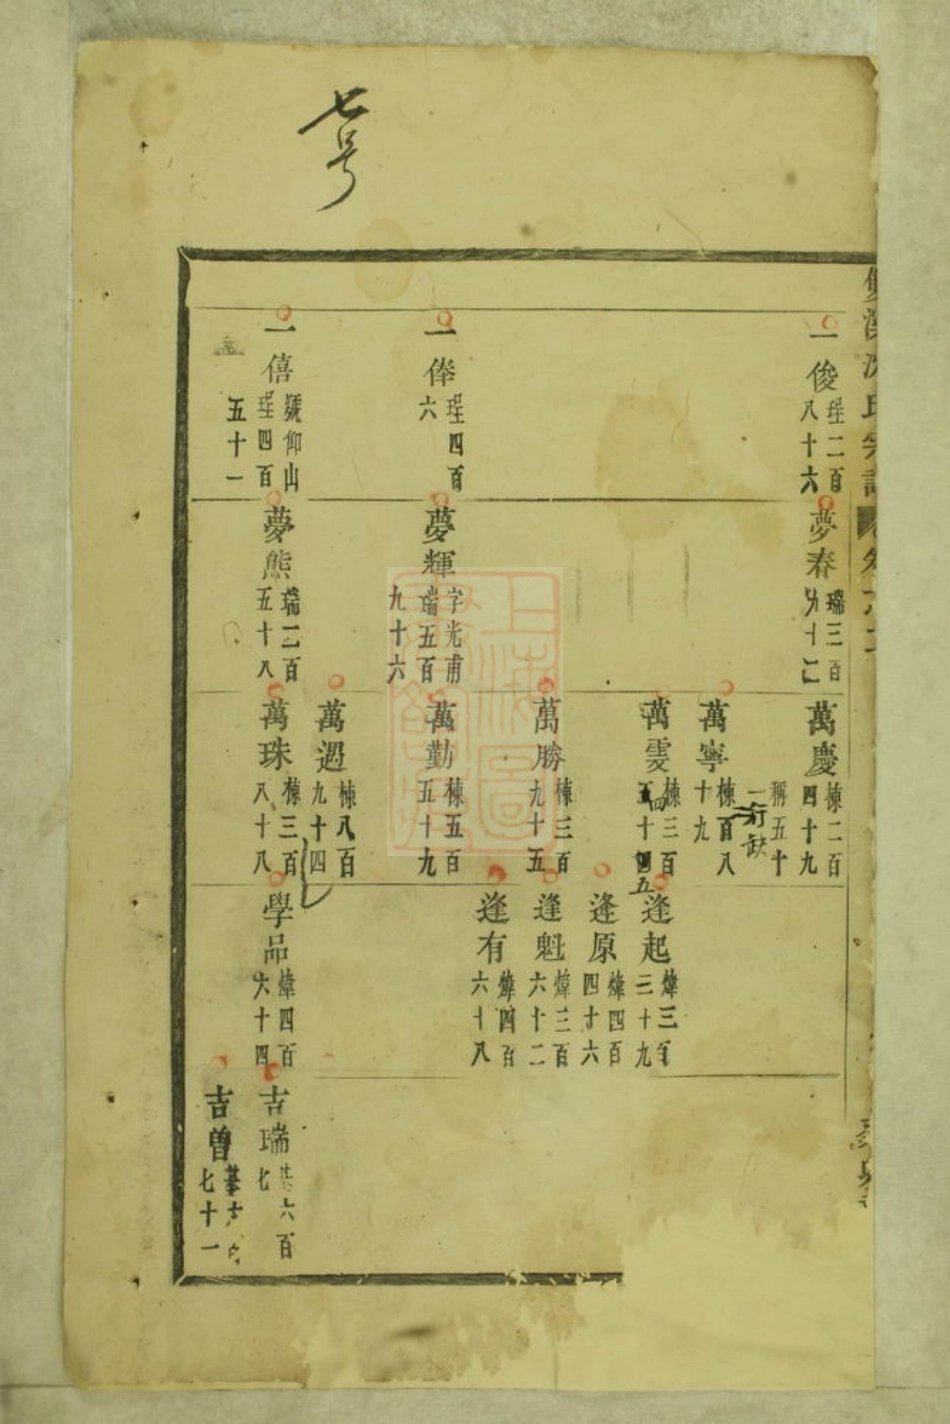 七号
宗譜
一俊
珵二百
八十六
一俸
珵四百
六
一僖
號仰山
珵四百
五十一
夢春
瑞三百
九十二
夢輝
字光甫
瑞五百
九十六
夢熊
瑞二百
五十八
萬慶
棟二百
四十九
稱五十
一訂缺
萬寧
棟百八
十九
萬雯
棟三百
十
五
萬勝
棟三百
九十五
萬勤
棟五百
五十九
萬過
棟八百
九十四
萬珠
棟三百
八十八
逢起
煒三百
三十九
逢原
煒四百
四十六
逢魁
煒三百
六十二
逢有
煒四百
六十八
學品
煒四百
六十四
吉瑞
六百
七
吉曽
七十一